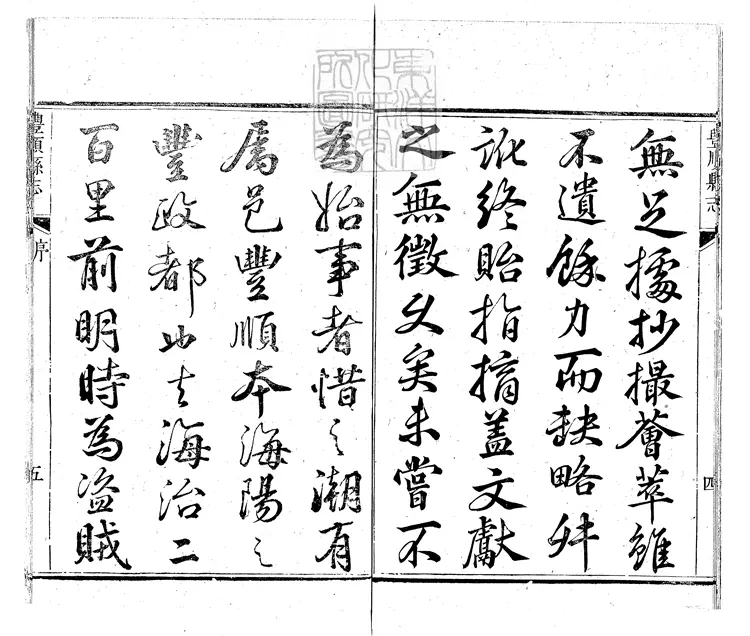 豐順縣志
四
無足據抄撮薈萃雖
不遺餘力而缺略舛
訛終貽指摘蓋文獻
之無徵久矣未嘗不
為始事者惜之潮有
屬邑豐順本海陽之
豐政都去海治二
百里前明時為盜賊
豐順縣志
序
五